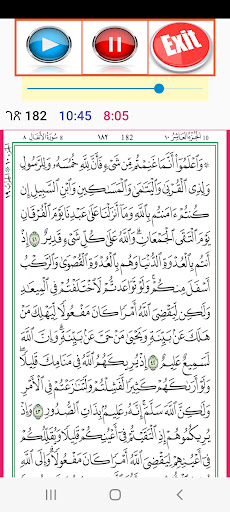 Exit
ገጽ 182 10:45 8:05
10 الجزء العاشر ١٠ 182 ١٨٢ 8 سورة الأنفال ٨
۞ وَٱعْلَمُوٓا۟ أَنَّمَا غَنِمْتُم مِّن شَىْءٍ فَأَنَّ لِلَّهِ خُمُسَهُۥ وَلِلرَّسُولِ
وَلِذِى ٱلْقُرْبَىٰ وَٱلْيَتَـٰمَىٰ وَٱلْمَسَـٰكِينِ وَٱبْنِ ٱلسَّبِيلِ إِن
كُنتُمْ ءَامَنتُم بِٱللَّهِ وَمَآ أَنزَلْنَا عَلَىٰ عَبْدِنَا يَوْمَ ٱلْفُرْقَانِ
يَوْمَ ٱلْتَقَى ٱلْجَمْعَانِ ۗ وَٱللَّهُ عَلَىٰ كُلِّ شَىْءٍ قَدِيرٌ ٤١
إِذْ أَنتُم بِٱلْعُدْوَةِ ٱلدُّنْيَا وَهُم بِٱلْعُدْوَةِ ٱلْقُصْوَىٰ وَٱلرَّكْبُ
أَسْفَلَ مِنكُمْ ۚ وَلَوْ تَوَاعَدتُّمْ لَٱخْتَلَفْتُمْ فِى ٱلْمِيعَـٰدِ ۙ
وَلَـٰكِن لِّيَقْضِىَ ٱللَّهُ أَمْرًا كَانَ مَفْعُولًا لِّيَهْلِكَ مَنْ
هَلَكَ عَنۢ بَيِّنَةٍ وَيَحْيَىٰ مَنْ حَىَّ عَنۢ بَيِّنَةٍ ۗ وَإِنَّ ٱللَّهَ
لَسَمِيعٌ عَلِيمٌ ٤٢ إِذْ يُرِيكَهُمُ ٱللَّهُ فِى مَنَامِكَ قَلِيلًا ۖ
وَلَوْ أَرَىٰكَهُمْ كَثِيرًا لَّفَشِلْتُمْ وَلَتَنَـٰزَعْتُمْ فِى ٱلْأَمْرِ
وَلَـٰكِنَّ ٱللَّهَ سَلَّمَ ۗ إِنَّهُۥ عَلِيمٌۢ بِذَاتِ ٱلصُّدُورِ ٤٣ وَإِذْ
يُرِيكُمُوهُمْ إِذِ ٱلْتَقَيْتُمْ فِىٓ أَعْيُنِكُمْ قَلِيلًا وَيُقَلِّلُكُمْ
فِىٓ أَعْيُنِهِمْ لِيَقْضِىَ ٱللَّهُ أَمْرًا كَانَ مَفْعُولًا ۗ وَإِلَى ٱللَّهِ